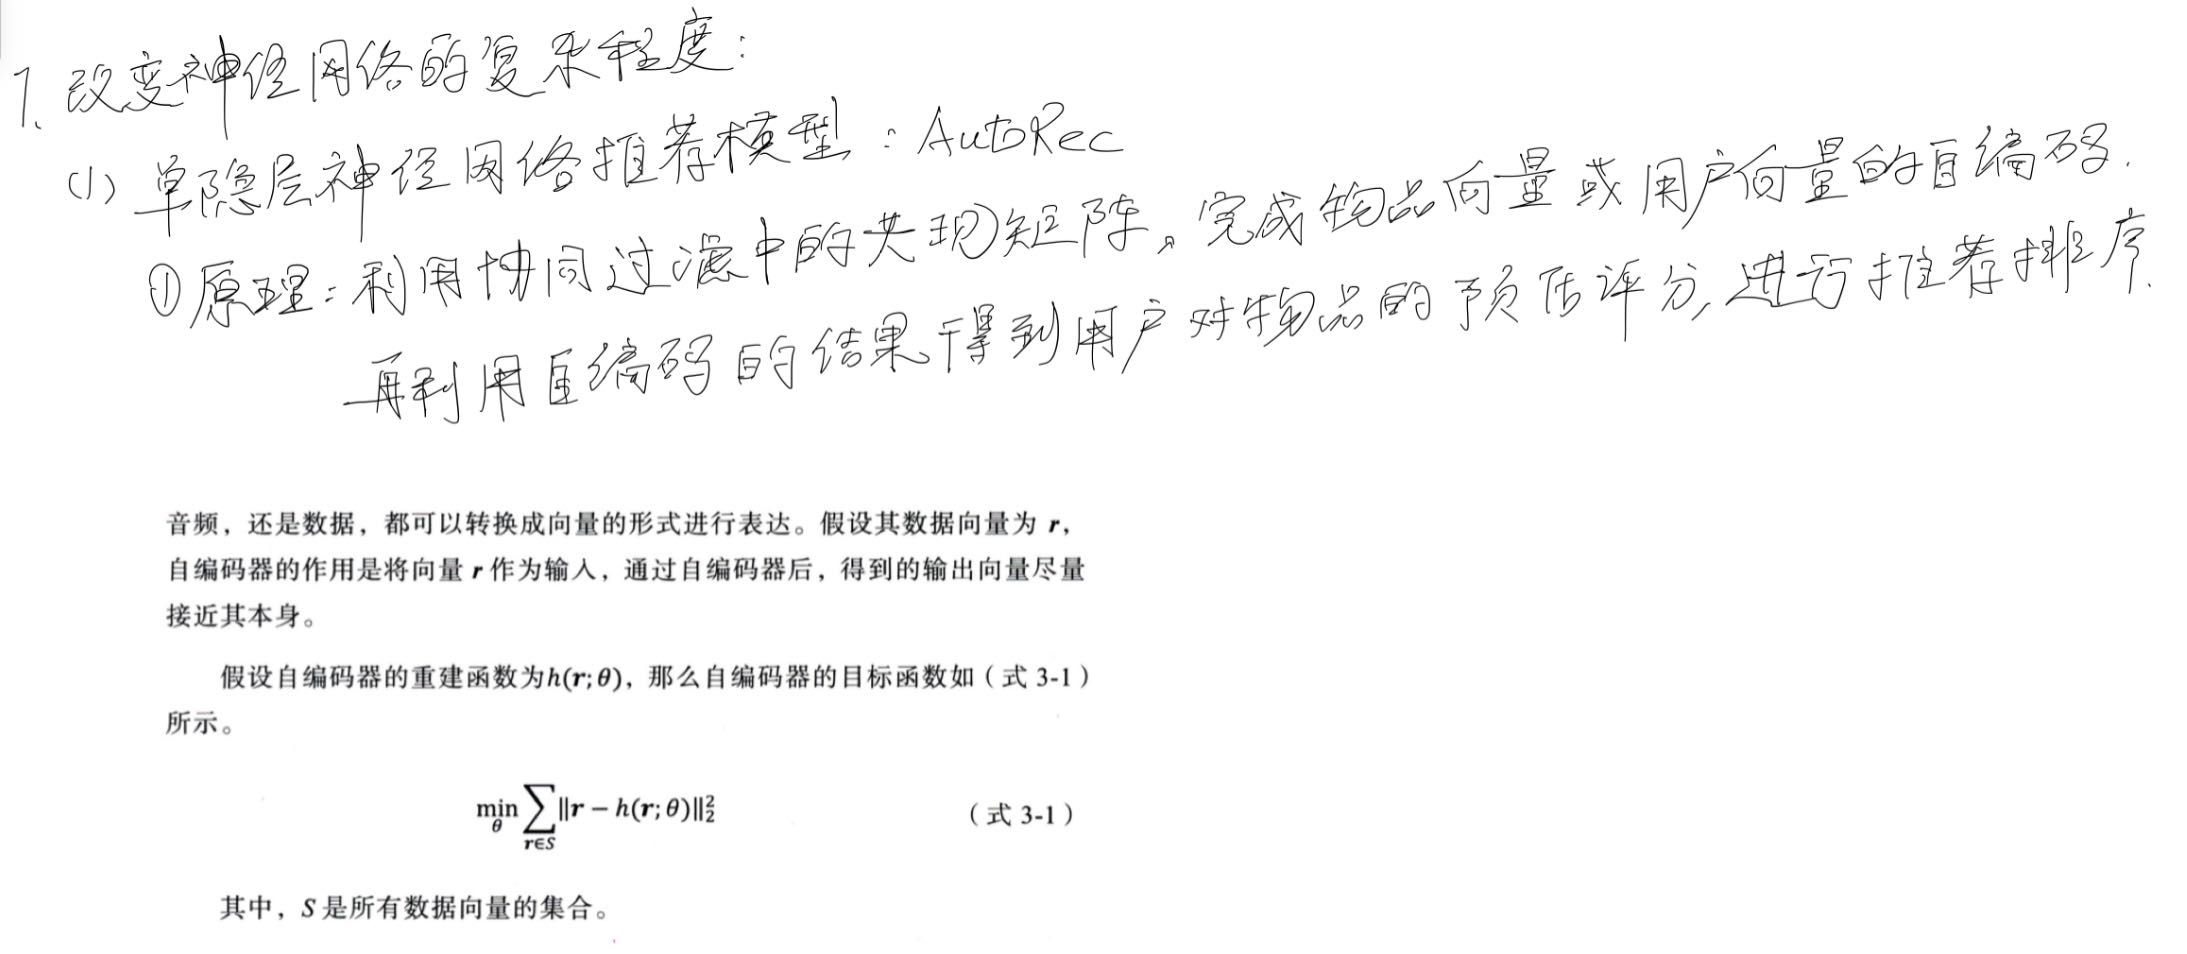 1. 改变神经网络的复杂程度：
(1) 单隐层神经网络推荐模型：AutoRec
①原理：利用协同过滤中的共现矩阵。完成物品向量或用户向量的自编码.
再利用自编码的结果得到用户对物品的预估评分,进行推荐排序.
音频，还是数据，都可以转换成向量的形式进行表达。假设其数据向量为 r，
自编码器的作用是将向量 r 作为输入，通过自编码器后，得到的输出向量尽量
接近其本身。
假设自编码器的重建函数为h(r; θ)，那么自编码器的目标函数如（式 3-1）
所示。
min_θ ∑_{r∈S} ‖r − h(r; θ)‖₂² （式 3-1）
其中，S 是所有数据向量的集合。